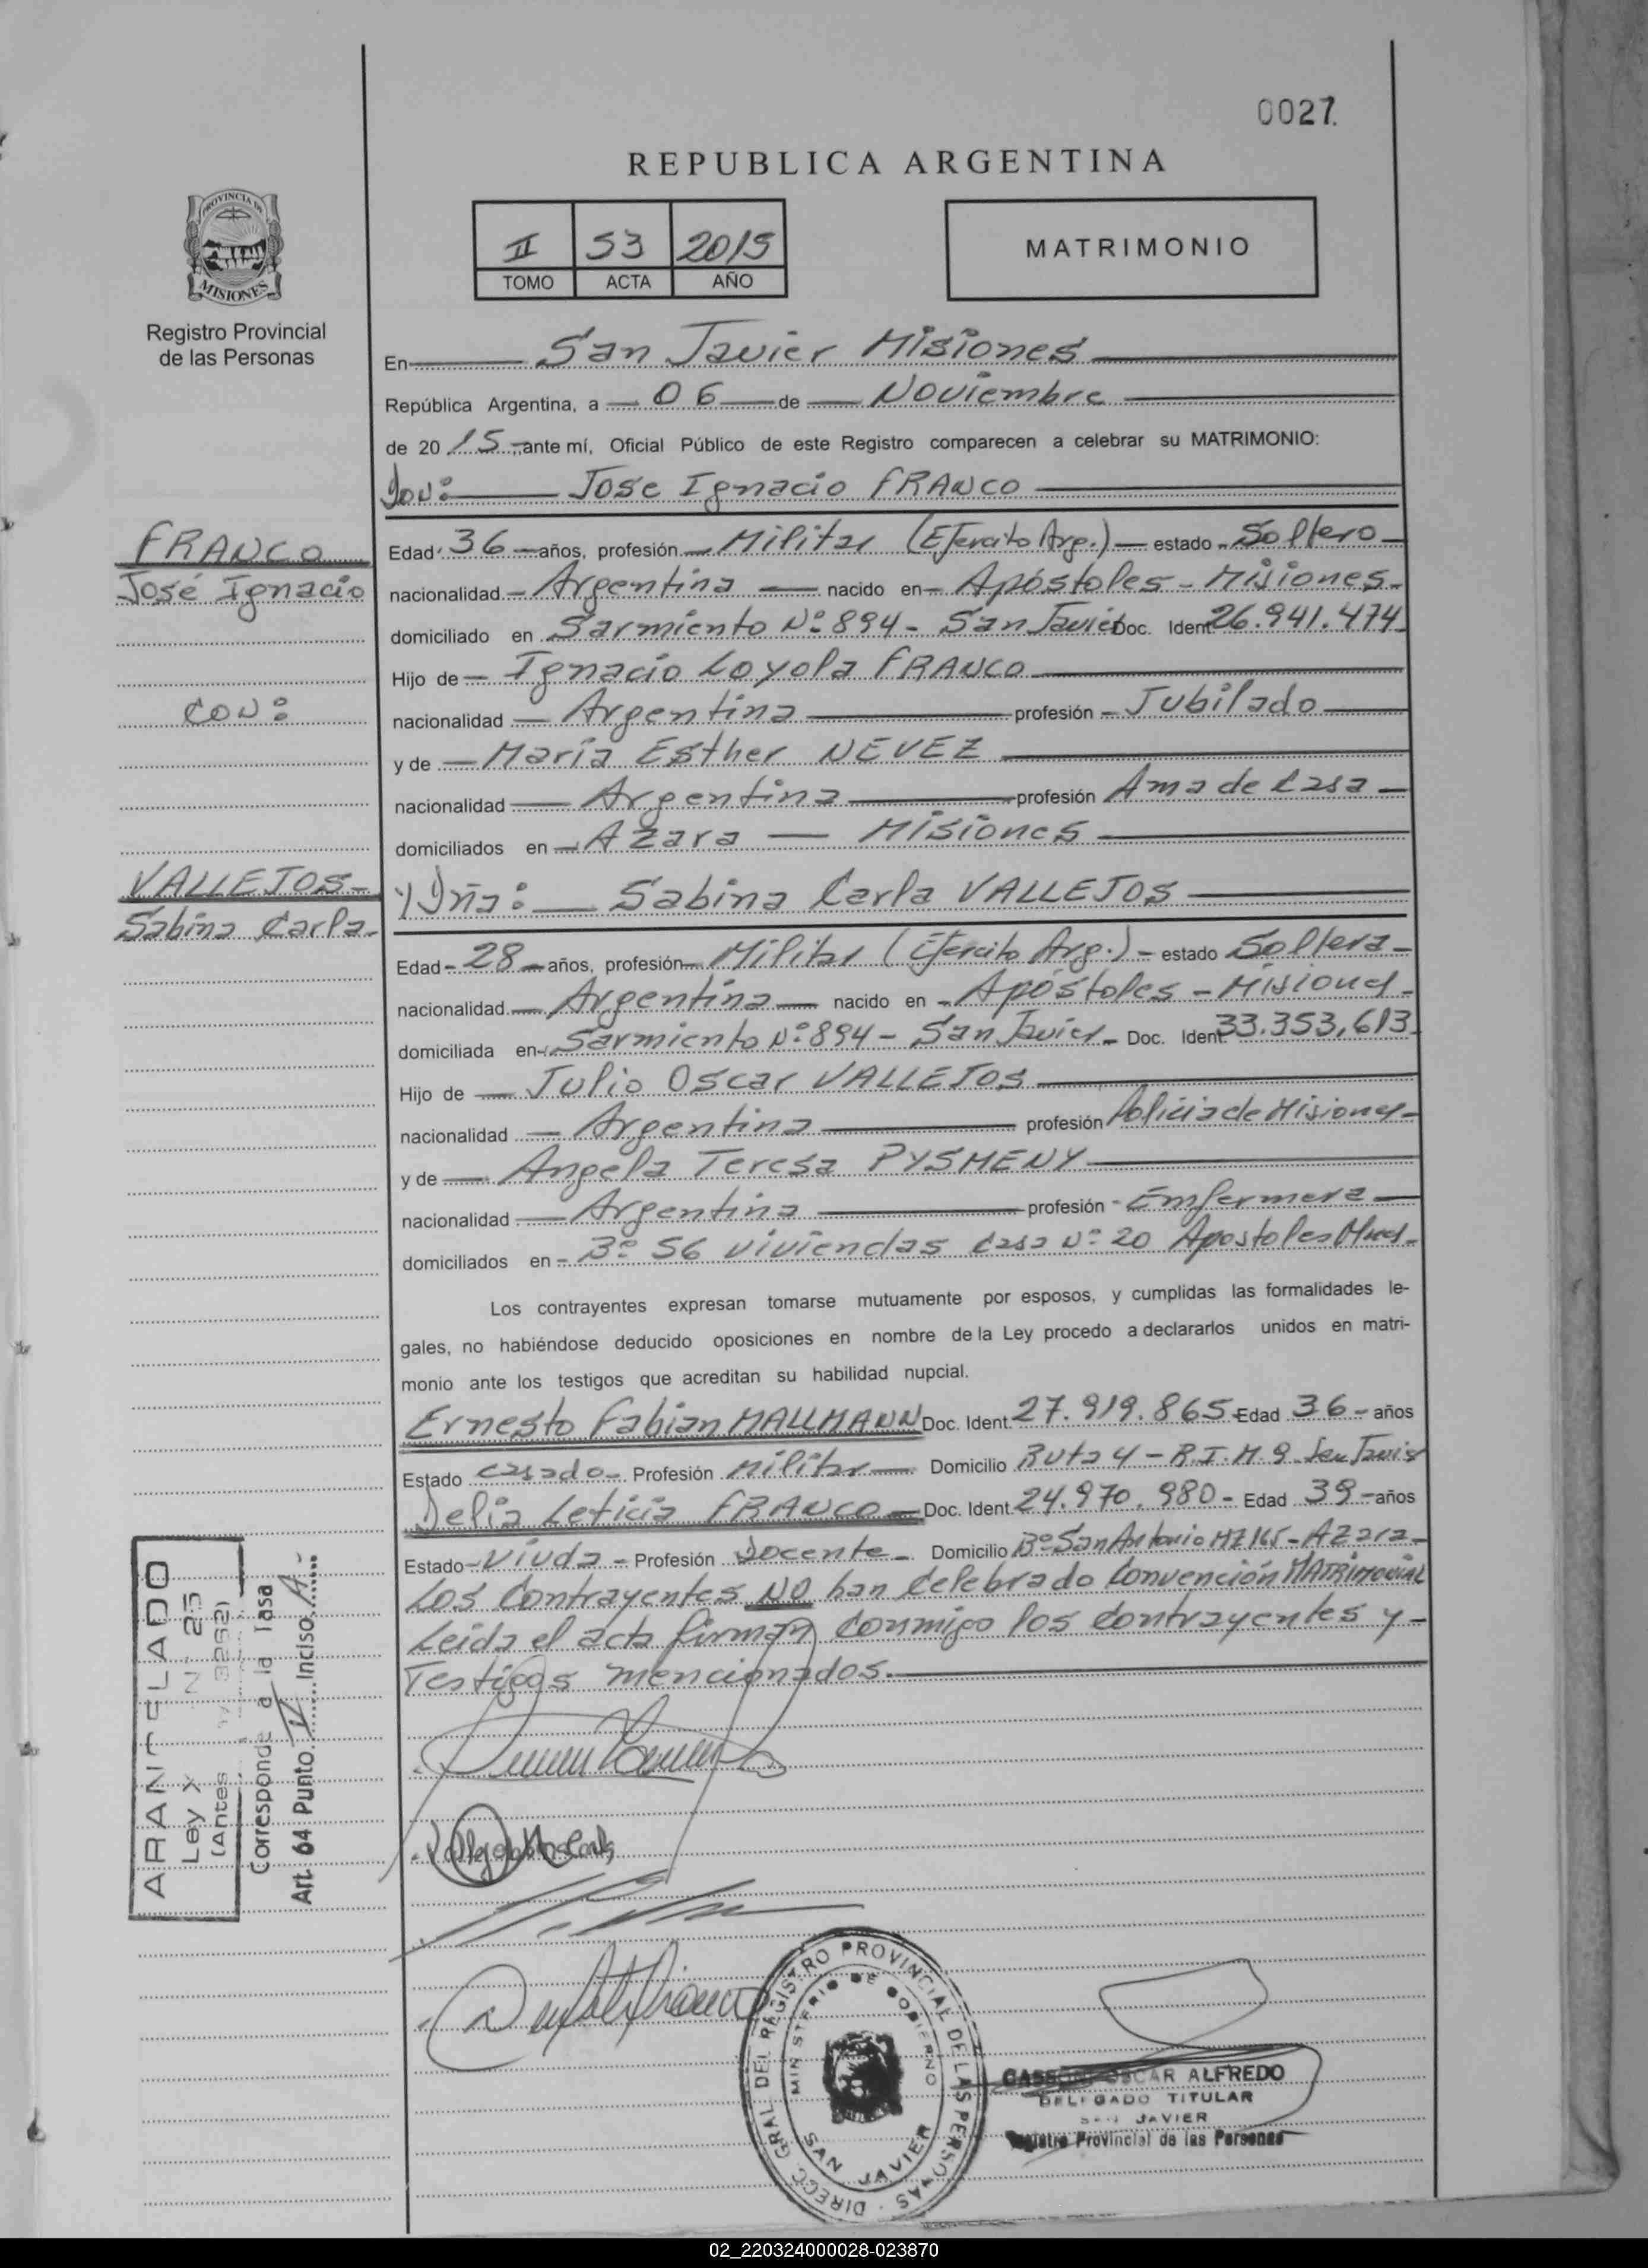 0027.
REPUBLICA ARGENTINA
PROVINCIA DE
MISIONES
Registro Provincial
de las Personas
II 53 2015
TOMO ACTA AÑO
MATRIMONIO
En San Javier Misiones
República Argentina, a 06 de Noviembre
de 20 15 ,ante mí, Oficial Público de este Registro comparecen a celebrar su MATRIMONIO:
Don: Jose Ignacio FRANCO
FRANCO
José Ignacio
CON:
VALLEJOS-
Sabina Carla-
Edad 36 años, profesión Militar (Ejercito Arg.) estado Soltero
nacionalidad Argentina nacido en Apóstoles - Misiones-
domiciliado en Sarmiento Nº 894 - San Javier Doc. Ident. 26.941.474
Hijo de Ignacio Loyola FRANCO
nacionalidad Argentina profesión Jubilado
y de María Esther NEVEZ
nacionalidad Argentina profesión Ama de Casa
domiciliados en Azara - Misiones
y Dña: Sabina Carla VALLEJOS
Edad 28 años, profesión Militar (Ejercito Arg.) - estado Soltera
nacionalidad Argentina nacido en Apóstoles - Misiones-
domiciliada en Sarmiento Nº 894 - San Javier Doc. Ident. 33.353,613
Hijo de Julio Oscar VALLEJOS
nacionalidad Argentina profesión Policia de Misiones
y de Angela Teresa PYSMENY
nacionalidad Argentina profesión Enfermera
domiciliados en Bº 56 viviendas casa Nº 20 Apostoles Mnes-
Los contrayentes expresan tomarse mutuamente por esposos, y cumplidas las formalidades le-
gales, no habiéndose deducido oposiciones en nombre de la Ley procedo a declararlos unidos en matri-
monio ante los testigos que acreditan su habilidad nupcial.
Ernesto Fabian MALLMANN Doc. Ident. 27.919.865 Edad 36 años
Estado casado Profesión Militar Domicilio Ruta 4 - R.I.M.9 San Javier
Delia Leticia FRANCO Doc. Ident. 24.970.980 - Edad 39 años
Estado Viuda - Profesión Docente Domicilio Bº San Antonio MZ 165 - Azara-
Los Contrayentes NO han Celebrado Convención MATRIMONIAL
Leida el acta firman Conmigo los Contrayentes y
Testigos mencionados.
ARANCELADO
Ley X Nº 25
(Antes 3252)
Corresponde a la Tasa
Art. 64 Punto Inciso A
DIRECC. GRAL. DEL REGISTRO PROVINCIAL DE LAS PERSONAS
MINISTERIO DE GOBIERNO
SAN JAVIER
OSCAR ALFREDO
DELEGADO TITULAR
SAN JAVIER
Registro Provincial de las Personas
02_220324000028-023870